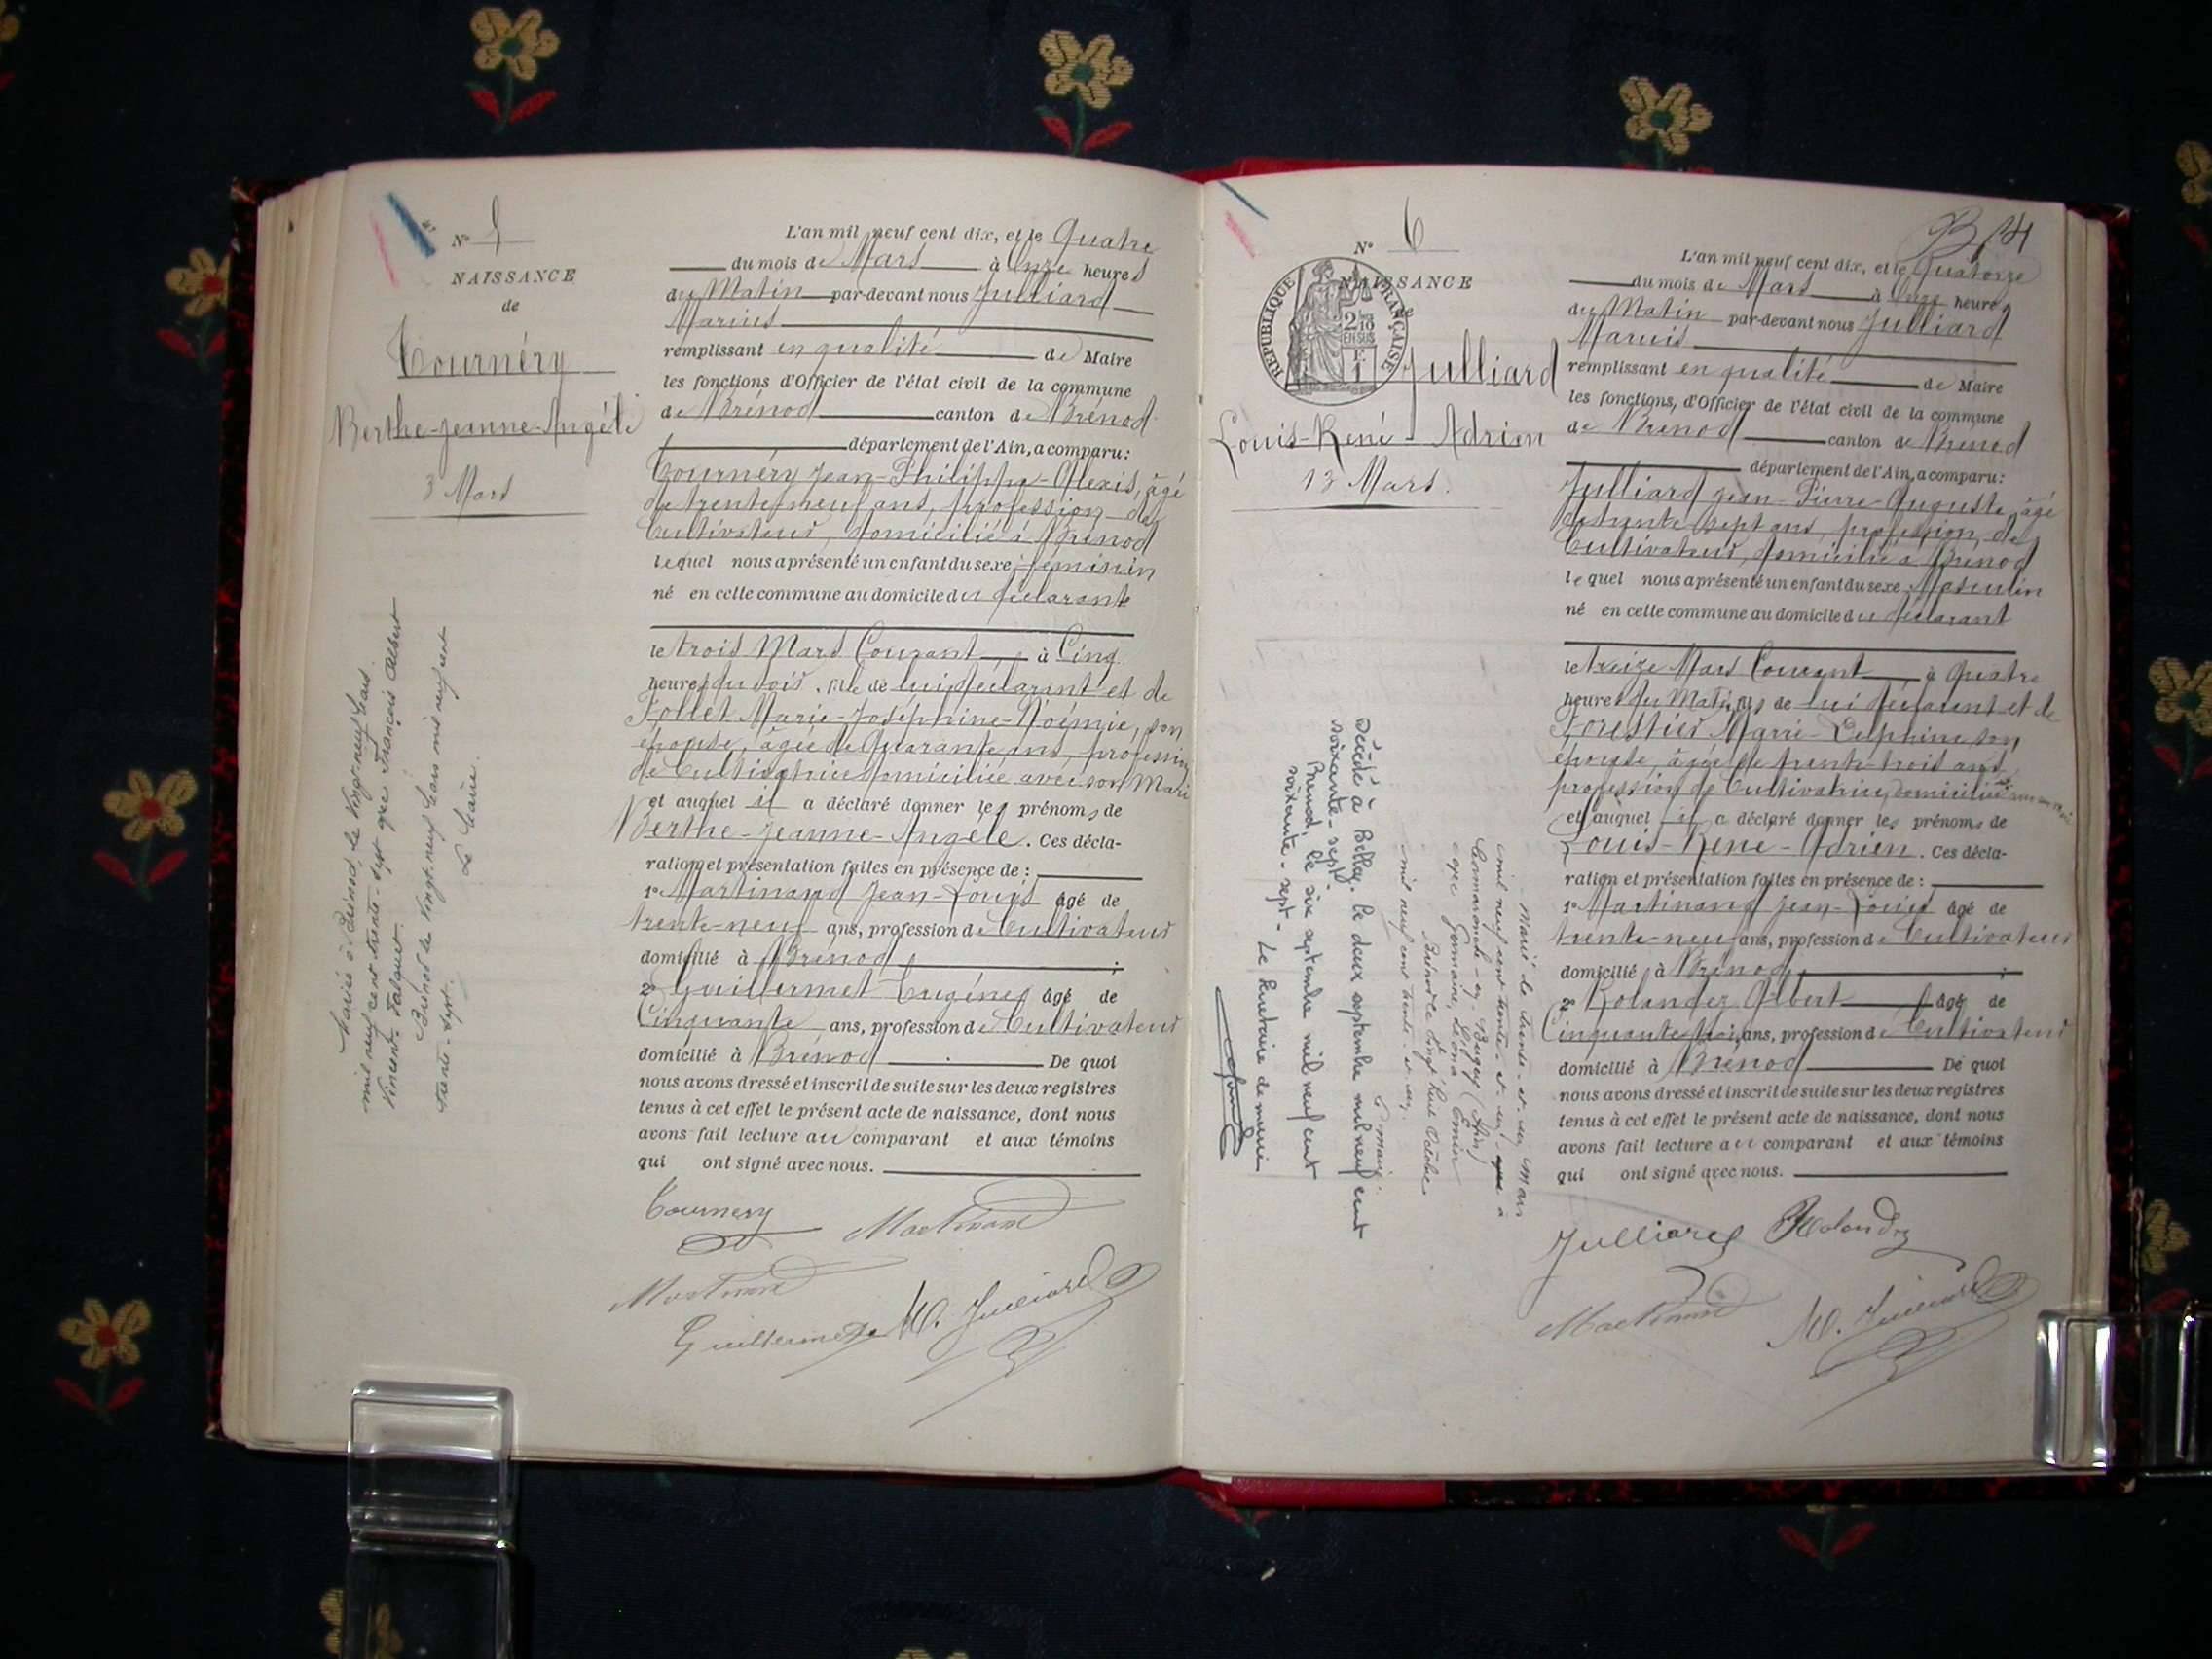 N° 5
NAISSANCE
de
Tournéry
Berthe-Jeanne-Angèle
3 Mars
Mariée à Brénod le Vingt-neuf Mars
mil neuf cent trente-sept avec François Albert
Vincent Falquet.
Brénod le Vingt-neuf Mars mil neuf cent
trente-sept.
Le Maire.
L'an mil neuf cent dix, et le Quatre
du mois de Mars à Onze heures
du Matin par-devant nous Julliard
Marius
remplissant en qualité de Maire
les fonctions d'Officier de l'état civil de la commune
de Brénod canton de Brénod
département de l'Ain, a comparu:
Tournéry Jean-Philippe-Alexis, âgé
de trente-neuf ans, profession de
Cultivateur, domicilié à Brénod
lequel nous a présenté un enfant du sexe féminin
né en cette commune au domicile du déclarant
le trois Mars Courant à Cinq
heures du soir, fille de lui déclarant et de
Follet Marie-Joséphine-Noémie, son
épouse, âgée de Quarante ans, profession
de Cultivatrice domiciliée avec son Mari
et auquel il a déclaré donner les prénoms de
Berthe-Jeanne-Angèle. Ces décla-
ration et présentation faites en présence de :
1° Martinand Jean-Louis âgé de
trente-neuf ans, profession de Cultivateur
domicilié à Brénod ;
2° Guillermet Eugène âgé de
Cinquante ans, profession de Cultivateur
domicilié à Brénod De quoi
nous avons dressé et inscrit de suite sur les deux registres
tenus à cet effet le présent acte de naissance, dont nous
avons fait lecture au comparant et aux témoins
qui ont signé avec nous.
Tournery Martinand
Martinand
Guillermet M. Julliard
B 14
N° 6
NAISSANCE
de
REPUBLIQUE FRANÇAISE
2/10
EN SUS
Julliard
Louis-René-Adrien
13 Mars.
Marié le trente-et-un Mars
mil neuf cent trente-et-un à
Champdor-en-Bugey (Ain)
avec Germaine, Léona
Brénod le vingt huit
mil neuf cent trente-et-un.
Le maire
Décédé à Belley. le deux septembre mil neuf cent
soixante-sept.
Brénod, le six septembre mil neuf cent
soixante-sept- Le Secrétaire de mairie
L'an mil neuf cent dix, et le Quatorze
du mois de Mars à Onze heures
du Matin par-devant nous Julliard
Marius
remplissant en qualité de Maire
les fonctions, d'Officier de l'état civil de la commune
de Brénod canton de Brénod
département de l'Ain, a comparu:
Julliard Jean-Pierre-Auguste, âgé
de trente-sept ans, profession de
Cultivateur, domicilié à Brénod
lequel nous a présenté un enfant du sexe Masculin
né en cette commune au domicile du déclarant
le treize Mars Courant à Quatre
heures du Matin, fils de lui déclarant et de
Forestier Marie-Delphine son
épouse, âgée de trente-trois ans
profession de Cultivatrice, domiciliée
et auquel il a déclaré donner les prénoms de
Louis-René-Adrien. Ces décla-
ration et présentation faites en présence de :
1° Martinand Jean-Louis âgé de
trente-neuf ans, profession de Cultivateur
domicilié à Brénod ;
2° Rolandez Albert âgé de
Cinquante trois ans, profession de Cultivateur
domicilié à Brénod De quoi
nous avons dressé et inscrit de suite sur les deux registres
tenus à cet effet le présent acte de naissance, dont nous
avons fait lecture au comparant et aux témoins
qui ont signé avec nous.
Julliard Rolandez
Martinand M. Julliard